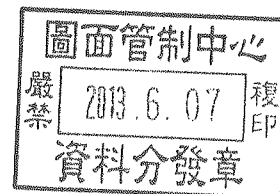 圖面管制中心
嚴禁
2013.6.07
複印
資料分發章